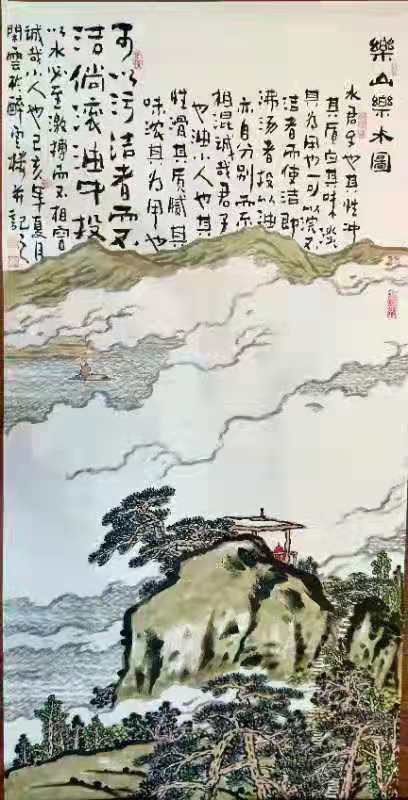 樂山樂水圖
水君子也其性冲
其质白其味淡
其为用也可以浣不
洁者而使洁即
沸汤者投以油
亦自分别而不
相混诚哉君子
也油小人也其
性滑其质腻其
味浓其为用也
可以污洁者而不
洁倘滚油中投
以水必至激搏而不相容
诚哉小人也己亥年夏月
閑雲於醉楼并記